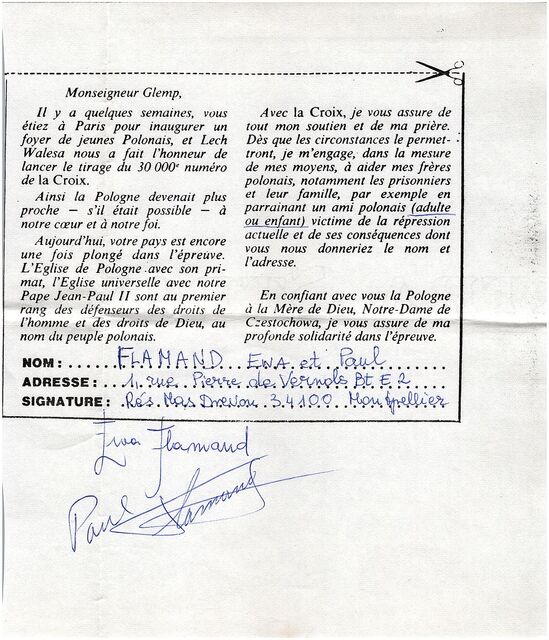 Monseigneur Glemp,
Il y a quelques semaines, vous
étiez à Paris pour inaugurer un
foyer de jeunes Polonais, et Lech
Walesa nous a fait l'honneur de
lancer le tirage du 30 000e numéro
de la Croix.
Ainsi la Pologne devenait plus
proche — s'il était possible — à
notre cœur et à notre foi.
Aujourd'hui, votre pays est encore
une fois plongé dans l'épreuve.
L'Eglise de Pologne avec son pri-
mat, l'Eglise universelle avec notre
Pape Jean-Paul II sont au premier
rang des défenseurs des droits de
l'homme et des droits de Dieu, au
nom du peuple polonais.
Avec la Croix, je vous assure de
tout mon soutien et de ma prière.
Dès que les circonstances le permet-
tront, je m'engage, dans la mesure
de mes moyens, à aider mes frères
polonais, notamment les prisonniers
et leur famille, par exemple en
parrainant un ami polonais (adulte
ou enfant) victime de la répression
actuelle et de ses conséquences dont
vous nous donneriez le nom et
l'adresse.
En confiant avec vous la Pologne
à la Mère de Dieu, Notre-Dame de
Czestochowa, je vous assure de ma
profonde solidarité dans l'épreuve.
NOM: FLAMAND Ewa et Paul
ADRESSE: 1, rue Pierre de Vernols Bt E 2
SIGNATURE: Rés. Mas Drevon 34100 Montpellier
Ewa Flamand
Paul Flamand